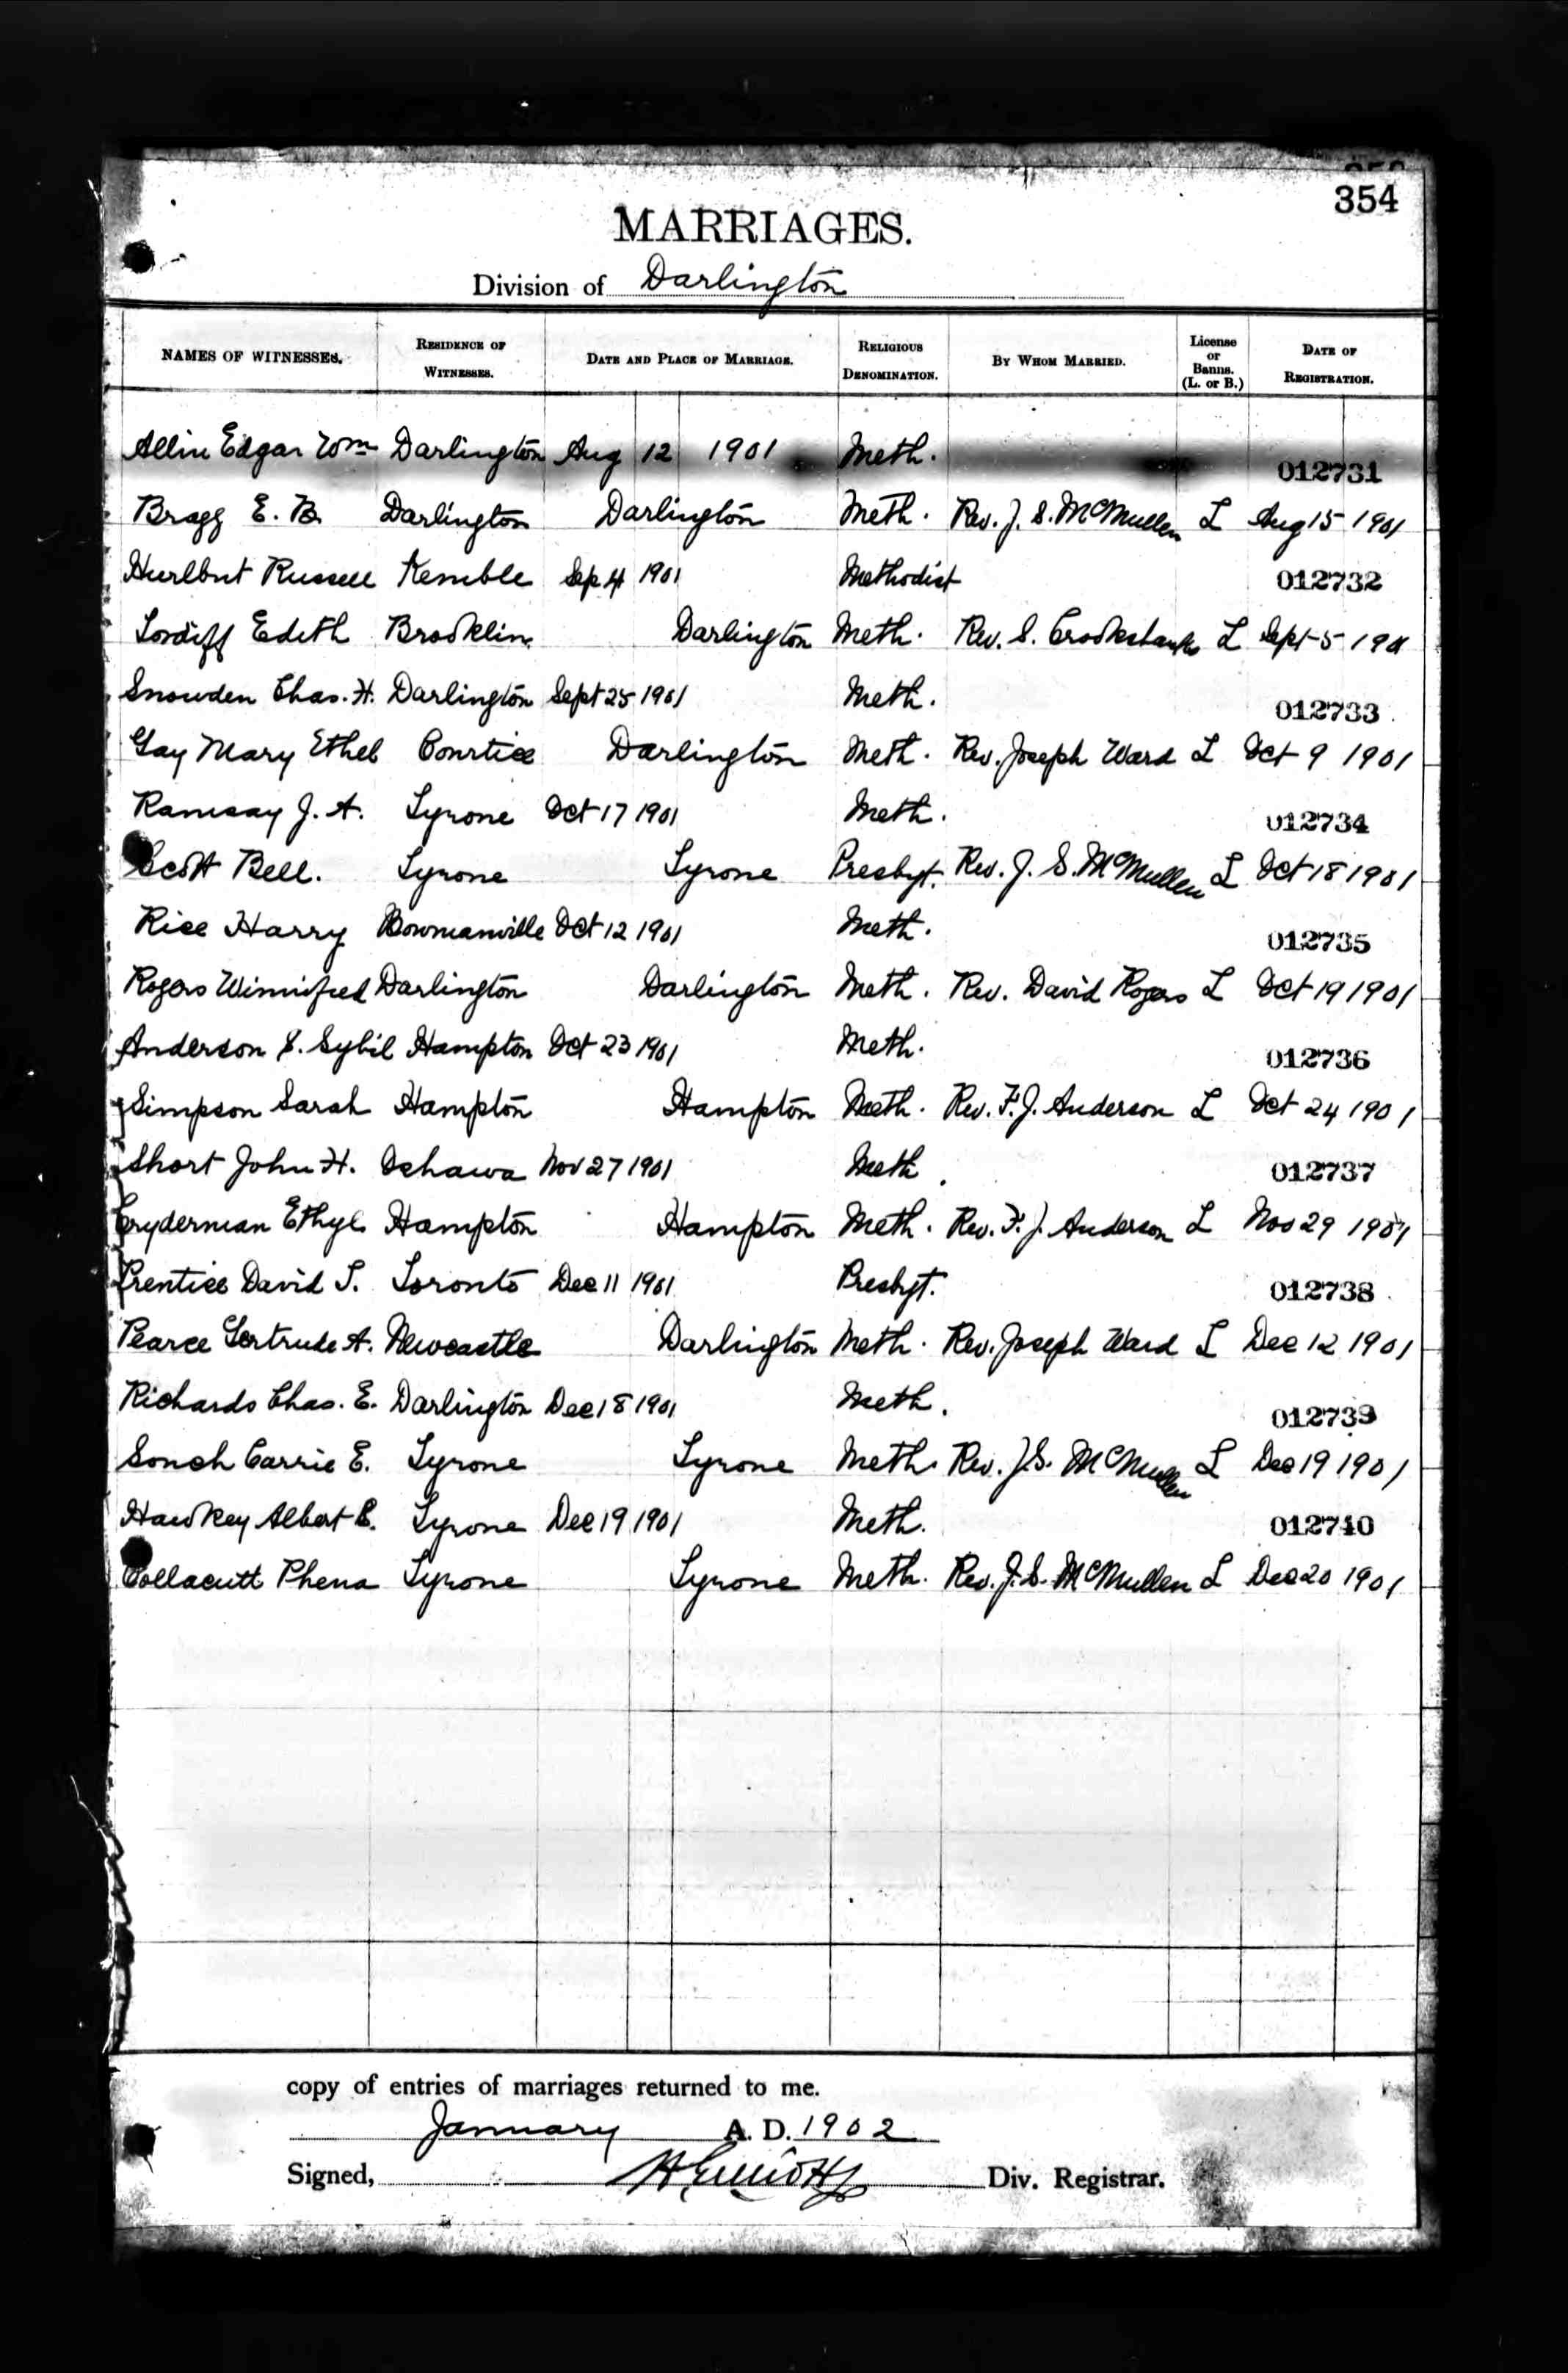 354
MARRIAGES.
Division of Darlington
NAMES OF WITNESSES. RESIDENCE OF WITNESSES. DATE AND PLACE OF MARRIAGE. RELIGIOUS DENOMINATION. BY WHOM MARRIED. License or Banns. (L. or B.) DATE OF REGISTRATION.
Allin Edgar Wm Darlington Aug 12 1901 Meth. 012731
Bragg E. B. Darlington Darlington Meth. Rev. J. S. McMullen L Aug 15 1901
Hurlbut Russell Kemble Sep 4 1901 Methodist 012732
Edith Brooklin Darlington Meth. Rev. S. Crookshanks L Sept 5 1901
Snowden Chas. H. Darlington Sept 25 1901 Meth. 012733
Gay Mary Ethel Courtice Darlington Meth. Rev. Joseph Ward L Oct 9 1901
Ramsay J. A. Tyrone Oct 17 1901 Meth. 012734
Scott Bell. Tyrone Tyrone Presbyt. Rev. J. S. McMullen L Oct 18 1901
Rice Harry Bowmanville Oct 12 1901 Meth. 012735
Rogers Winnifred Darlington Darlington Meth. Rev. David Rogers L Oct 19 1901
Anderson S. Sybil Hampton Oct 23 1901 Meth. 012736
Simpson Sarah Hampton Hampton Meth. Rev. F. J. Anderson L Oct 24 1901
Short John H. Oshawa Nov 27 1901 Meth. 012737
Cryderman Ethyl Hampton Hampton Meth. Rev. F. J. Anderson L Nov 29 1901
Prentice David T. Toronto Dec 11 1901 Presbyt. 012738
Pearce Gertrude A. Newcastle Darlington Meth. Rev. Joseph Ward L Dec 12 1901
Richards Chas. E. Darlington Dec 18 1901 Meth. 012739
Souch Carrie E. Tyrone Tyrone Meth. Rev. J. S. McMullen L Dec 19 1901
Hawkey Albert E. Tyrone Dec 19 1901 Meth. 012740
Collacutt Phena Tyrone Tyrone Meth. Rev. J. S. McMullen L Dec 20 1901
copy of entries of marriages returned to me.
January A. D. 1902
Signed, H Elliott Div. Registrar.